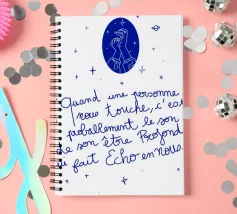 Quand une personne
nous touche, c'est
probablement le son
de son être Profond
qui fait Echo en nous.